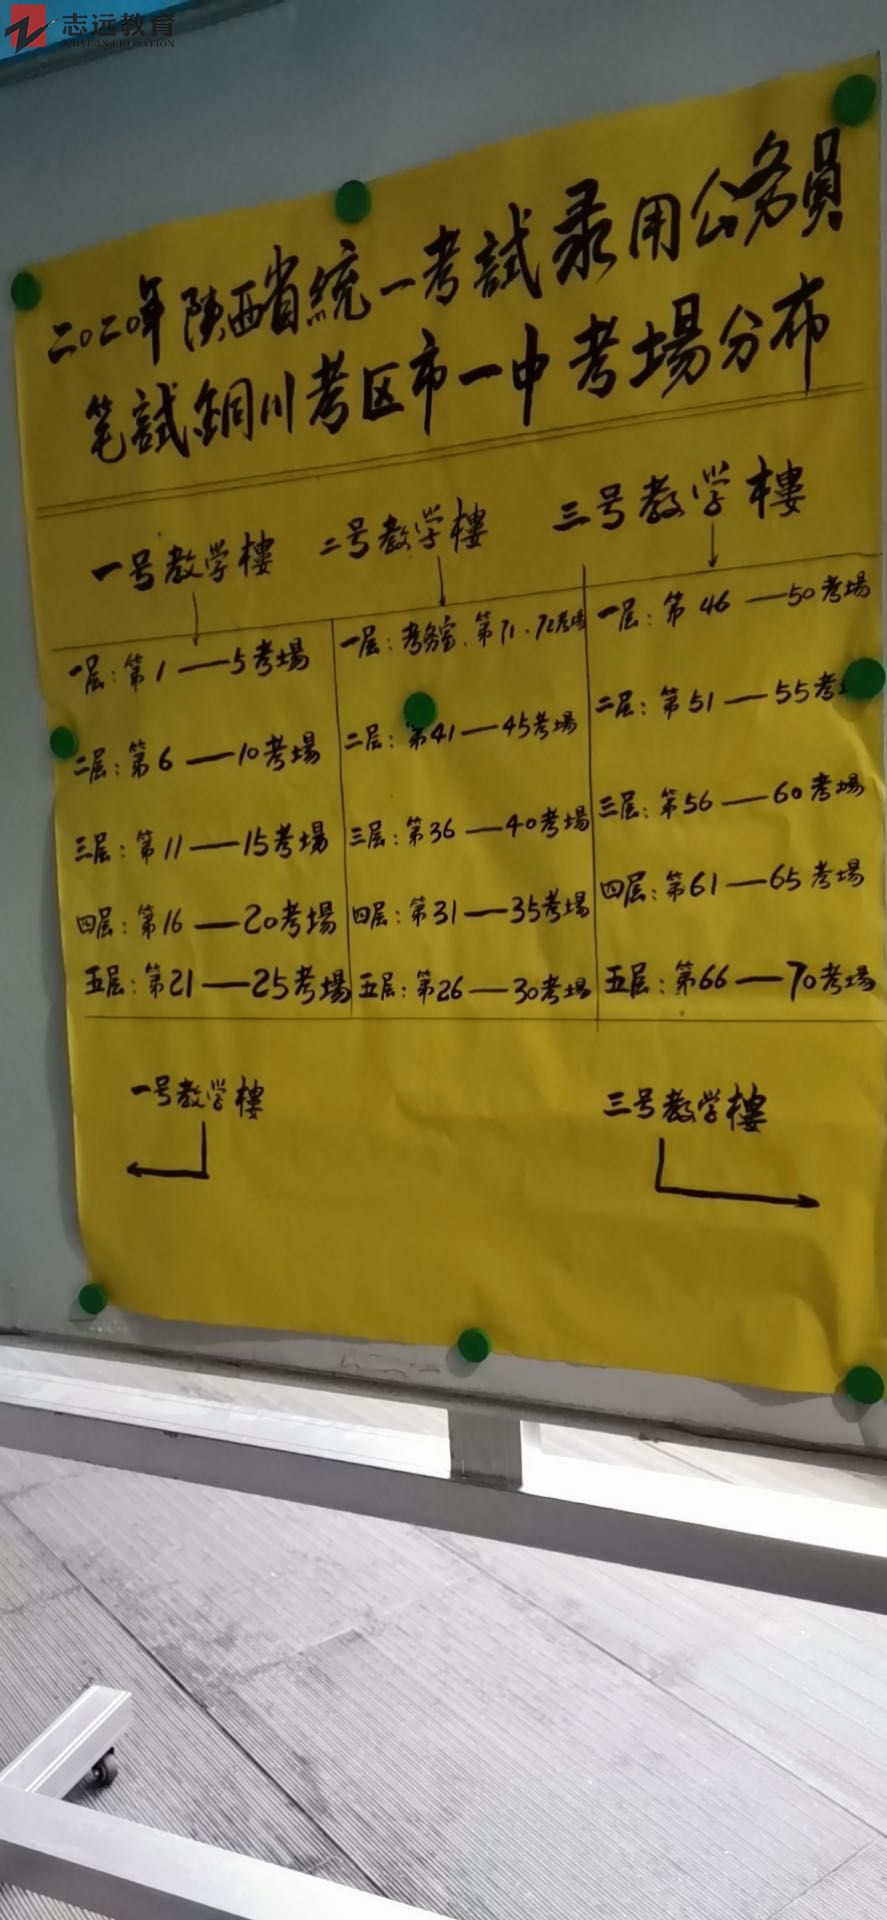 志远教育
ZHIYUAN EDUCATION
二〇二〇年陕西省統一考試录用公务員
笔試銅川考区市一中考場分布
一号教学樓 二号教学樓 三号教学樓
一层：第1——5考場
二层：第6——10考場
三层：第11——15考場
四层：第16——20考場
五层：第21——25考場
一层：考务室、第71、72考場
二层：第41——45考場
三层：第36——40考場
四层：第31——35考場
五层：第26——30考場
一层：第46——50考場
二层：第51——55考
三层：第56——60考場
四层：第61——65考場
五层：第66——70考場
一号教学樓
三号教学樓